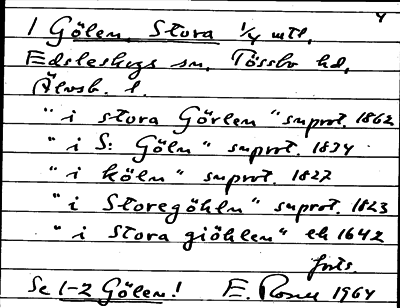 4
1 Gölen, Stora 1/4 mtl,
Edsleskogs sn, Tössbo hd,
Älvsb. l.
"i stora Görlen" suprot. 1862
"i S: Göln" suprot. 1834
"i köln" suprot. 1827
"i Storegöhln" suprot. 1823
"i Stora giöhlen" 1642
forts.
Se 1-2 Gölen! E. 1964